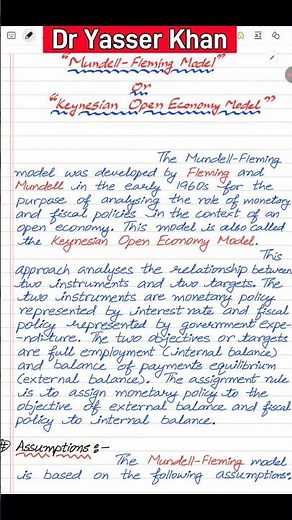 Dr Yasser Khan
"Mundell-Fleming Model"
or
"Keynesian Open Economy Model"
The Mundell-Fleming
model was developed by Fleming and
Mundell in the early 1960s for the
purpose of analysing the role of monetary
and fiscal policies in the context of an
open economy. This model is also called
the Keynesian Open Economy Model.
This
approach analyses the relationship between
two instruments and two targets. The
two instruments are monetary policy
represented by interest rate and fiscal
policy represented by government expe-
-nditure. The two objectives or targets
are full employment (internal balance)
and balance of payments equilibrium
(external balance). The assignment rule
is to assign monetary policy to the
objective of external balance and fiscal
policy to internal balance.
# Assumptions:-
The Mundell-Fleming model
is based on the following assumptions: